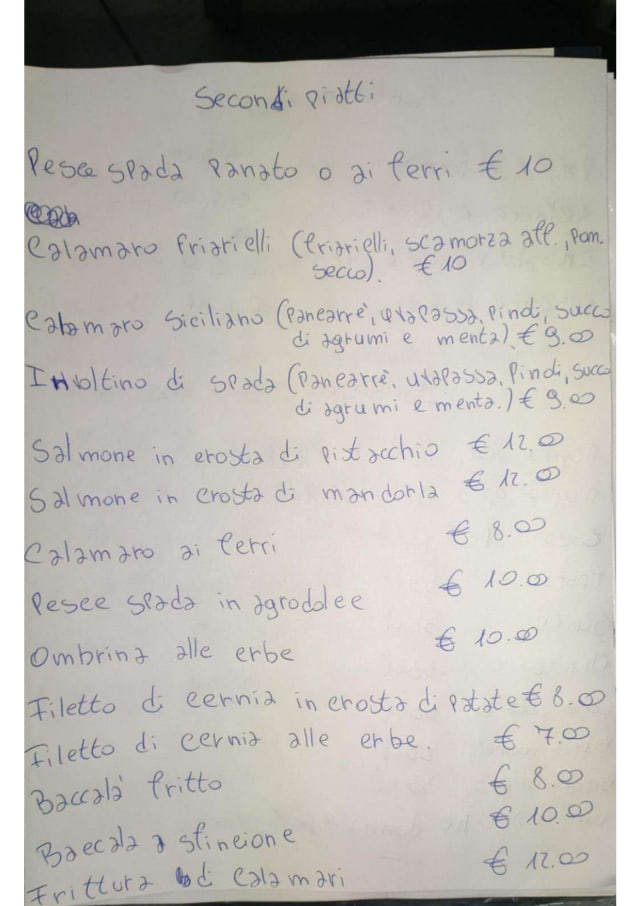 Secondi piatti
Pesce spada panato o ai ferri € 10
Calamaro friarielli (friarielli, scamorza aff., pom.
secco). € 10
Calamaro siciliano (panearrè, uvapassa, pinoli, succo
di agrumi e menta). € 9.00
Involtino di spada (panearrè, uvapassa, pinoli, succo
di agrumi e menta.) € 9.00
Salmone in crosta di pistacchio € 12.00
Salmone in crosta di mandorla € 12.00
Calamaro ai ferri € 8.00
Pesce spada in agrodolce € 10.00
Ombrina alle erbe € 10.00
Filetto di cernia in crosta di patate € 8.00
Filetto di cernia alle erbe. € 7.00
Baccalà fritto € 8.00
Baccala a sfincione € 10.00
Frittura di calamari € 12.00